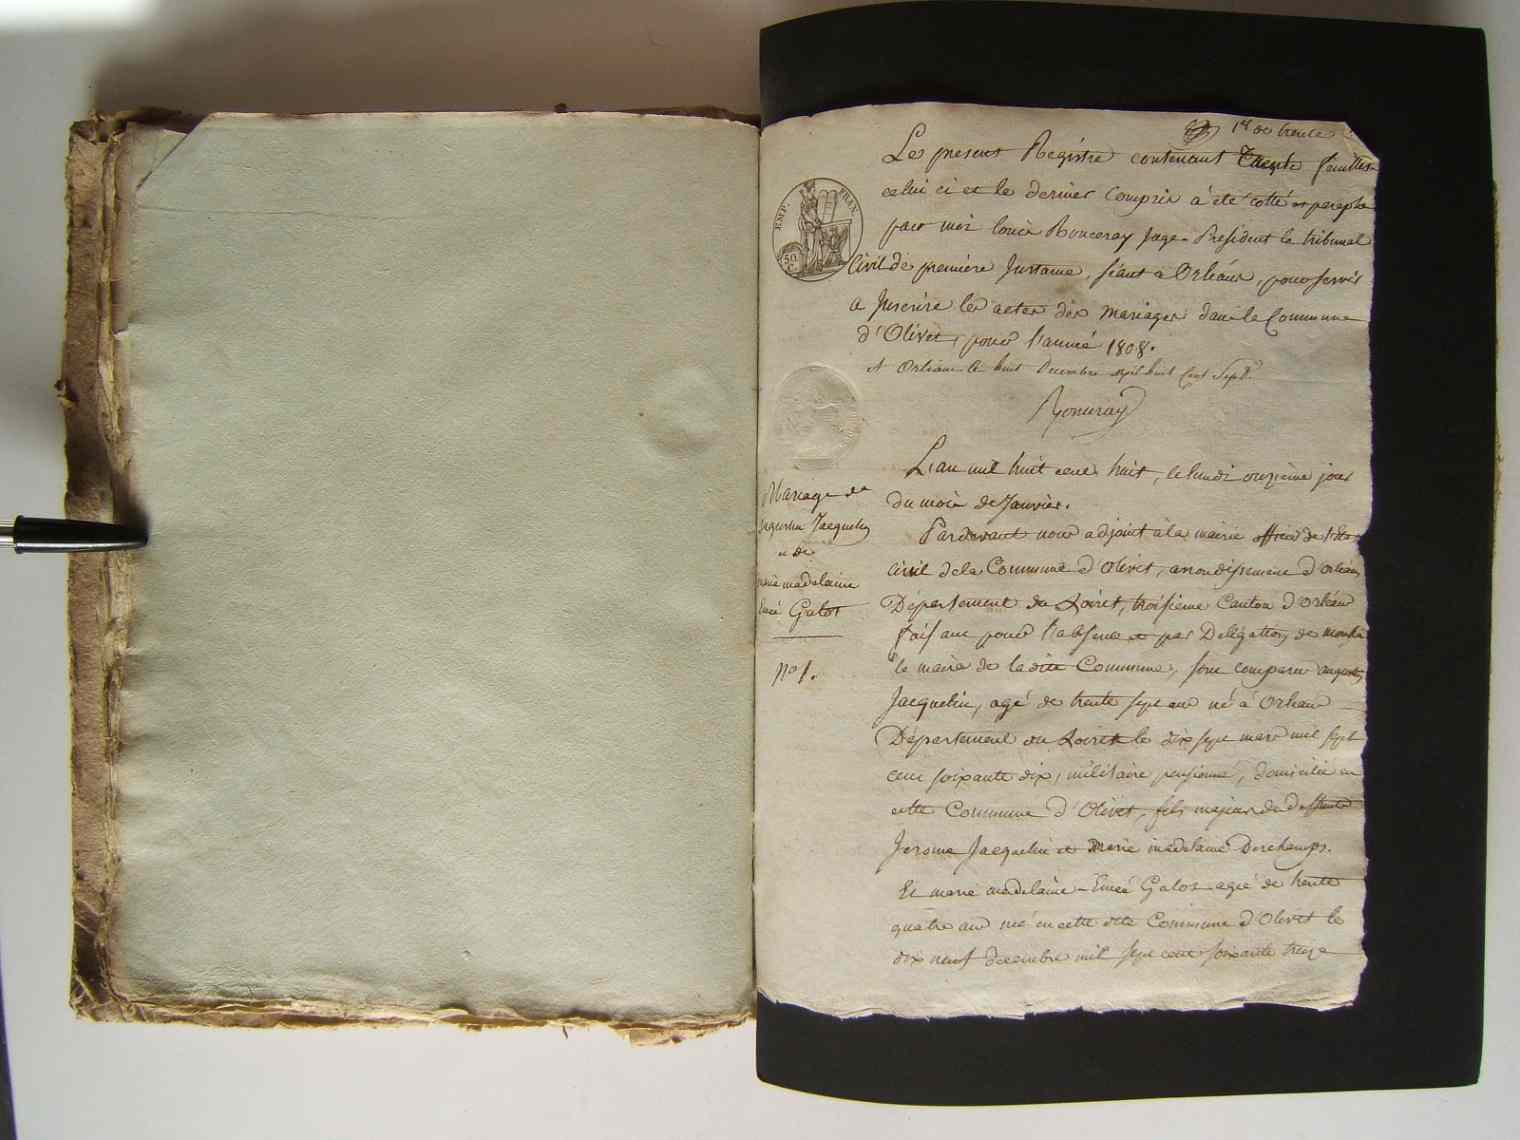 1er de trente
Le present Registre contenant Trente feuilles
celui ci et le dernier compris à été cotté et paraphé
par moi louis Ronceray Juge-President le tribunal
Civil de première Instance, séant à Orléans, pour servir
a Inscrire les actes des mariages dans la Commune
d'Olivet, pour l'année 1808.
A Orléans le huit Decembre mil huit Cent Sept.
Ronceray
EMP. FRAN.
50. C.
Mariage de
augustin Jacquelin
et de
marie madelaine
Emée Galot
No 1.
L'an mil huit cent huit, le lundi onzième jour
du mois de Janvier.
Pardevant nous adjoint à la mairie officier de l'état
civil de la Commune d'Olivet, arrondissement d'orleans
Département du Loiret, troisieme Canton d'Orléans
faisant pour l'absence et par Délégation de monsieur
le maire de la ditte Commune, sont comparu augustin
Jacquelin, agé de trente sept ans né à Orleans
Département du Loiret le dix sept mars mil sept
cent soixante dix, militaire pensionné, domicilié en
cette Commune d'Olivet, fils majeur de deffunts
Jerome Jacquelin et Marie madelaine Deschamps.
Et marie madelaine-Emée Galot agée de trente
quatre ans née en cette ditte Commune d'Olivet le
dix neuf decembre mil sept cent soixante treize